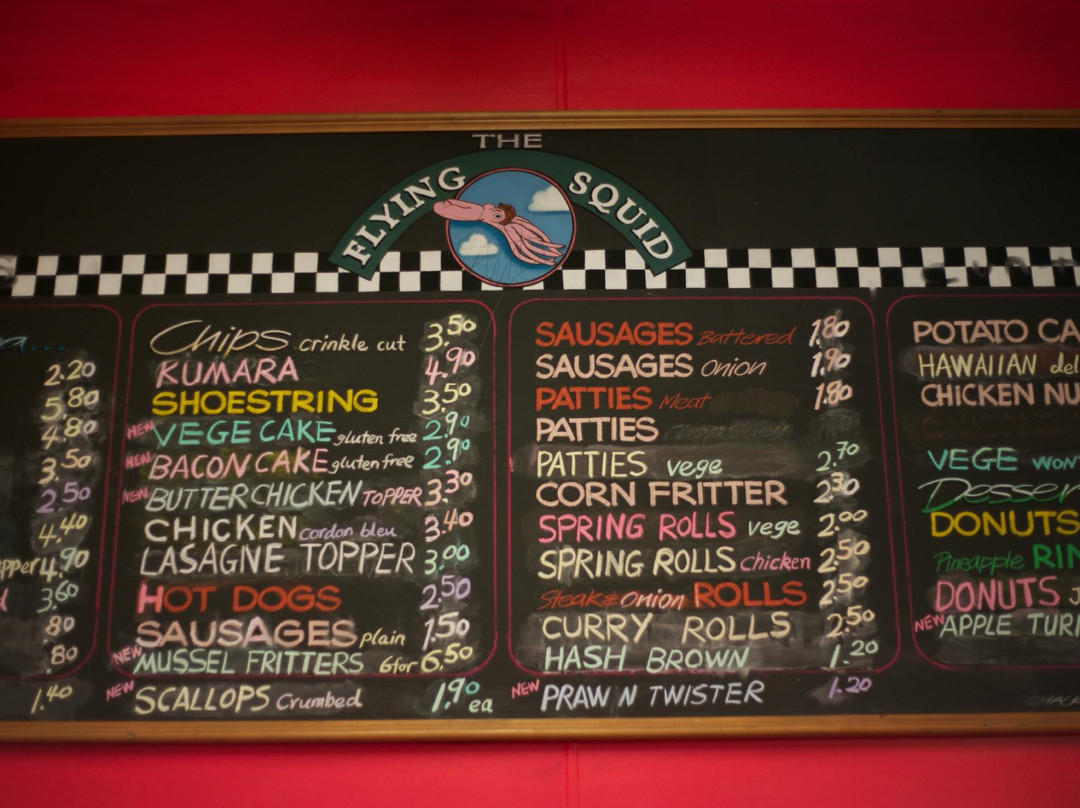 THE
FLYING SQUID
2.20
5.80
4.80
3.50
2.50
4.40
pper 4.90
3.60
80
80
1.40
Chips crinkle cut 3.50
KUMARA 4.90
SHOESTRING 3.50
NEW VEGE CAKE gluten free 2.90
NEW BACON CAKE gluten free 2.90
NEW BUTTER CHICKEN TOPPER 3.30
CHICKEN cordon bleu 3.40
LASAGNE TOPPER 3.00
HOT DOGS 2.50
SAUSAGES plain 1.50
NEW MUSSEL FRITTERS 6 for 6.50
NEW SCALLOPS Crumbed 1.90 ea
SAUSAGES Battered 1.80
SAUSAGES Onion 1.90
PATTIES Meat 1.80
PATTIES
PATTIES vege 2.70
CORN FRITTER 2.30
SPRING ROLLS vege 2.00
SPRING ROLLS chicken 2.50
Steak & Onion ROLLS 2.50
CURRY ROLLS 2.50
HASH BROWN 1.20
NEW PRAWN TWISTER 1.20
POTATO CA
HAWAIIAN del
CHICKEN NU
VEGE WON
Desser
DONUTS
Pineapple RIN
DONUTS J
NEW APPLE TUR